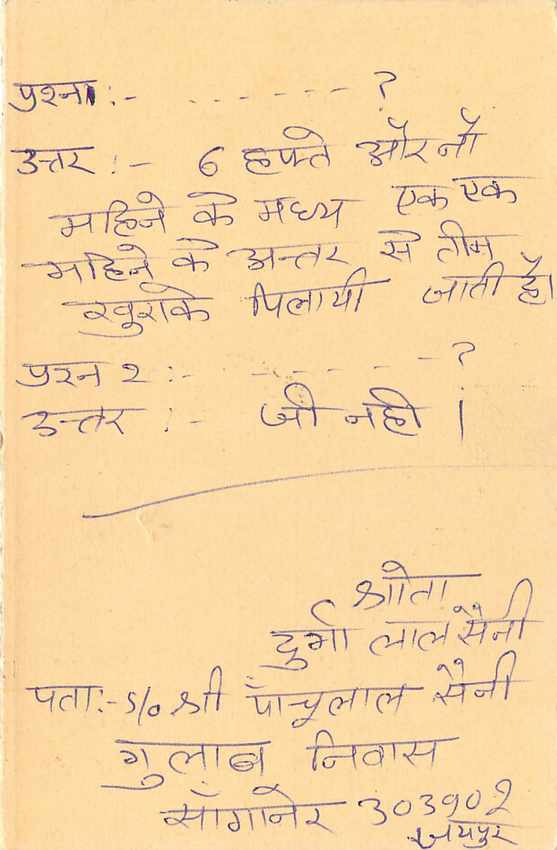 प्रश्न१:- - - - - - - ?
उत्तर :- 6 हफ्ते और नौ
महिने के मध्य एक एक
महिने के अन्तर से तीन
खुराके पिलायी जाती है।
प्रश्न २ :- - - - - - - ?
उत्तर :- जी नही ।
श्रोता
दुर्गा लाल सैनी
पता:- S/o श्री पाँचूलाल सैनी
गुलाब निवास
साँगानेर 303902
जयपुर